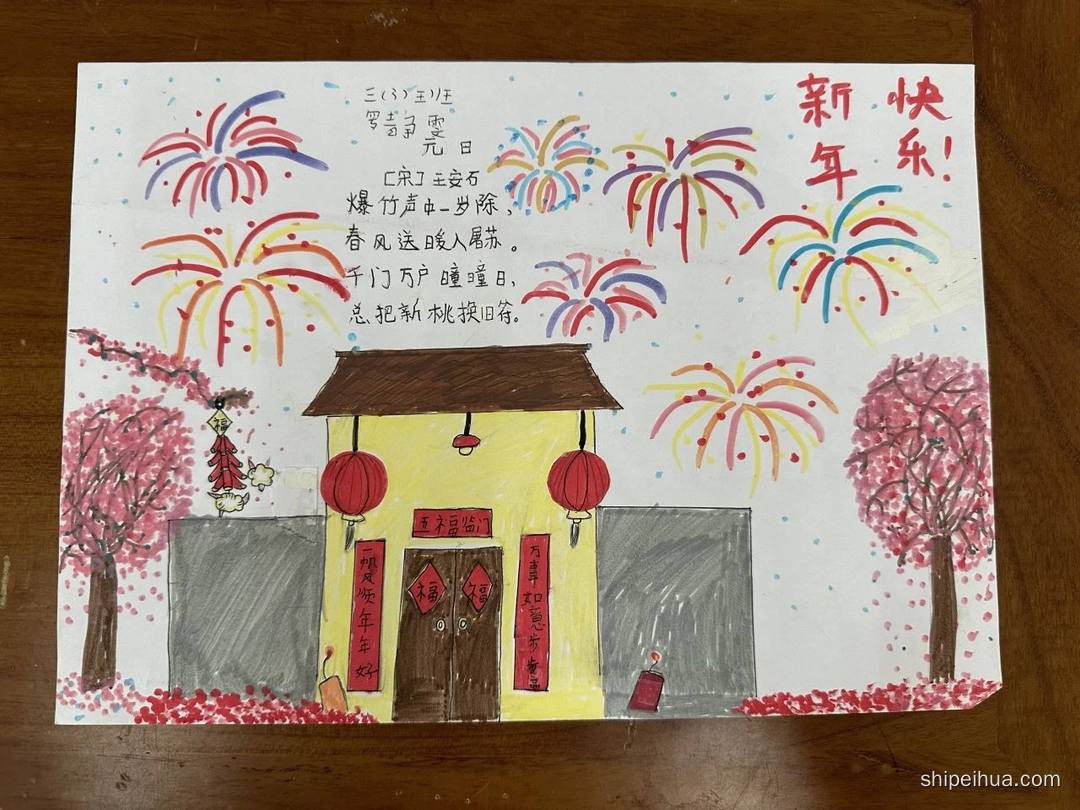 三(3)班
罗静雯
元 日
[宋]王安石
爆竹声中一岁除，
春风送暖入屠苏。
千门万户曈曈日，
总把新桃换旧符。
新年
快乐!
福
五福临门
一帆风顺年年好
万事如意步步高
福 福
shipeihua.com